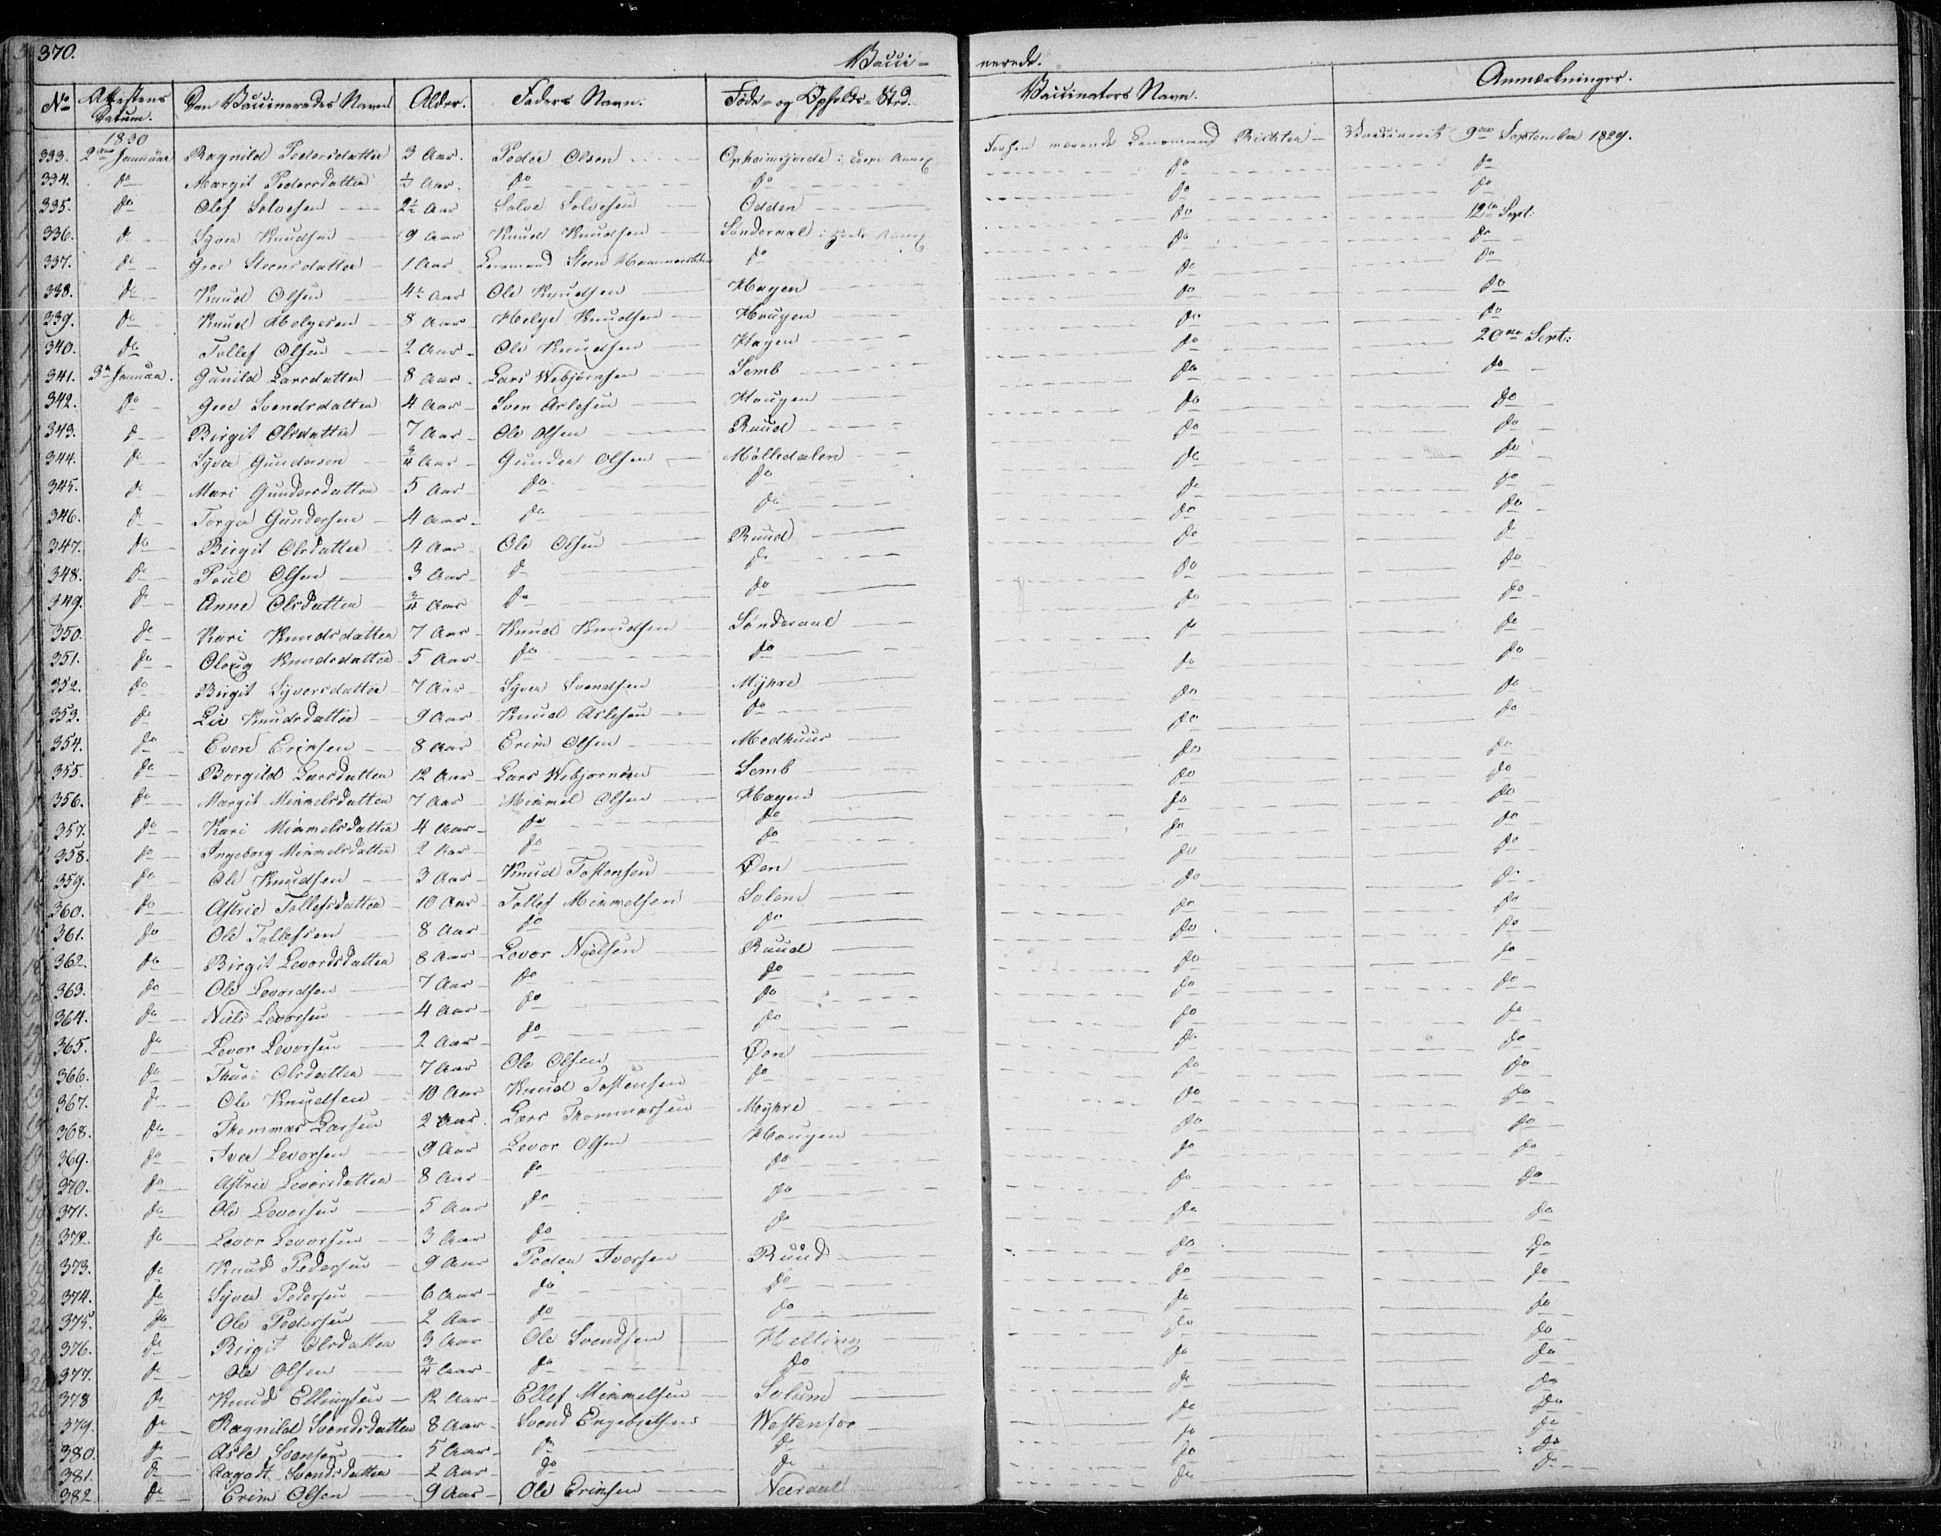 370. Vacci- nerede.
No Attestens Datum. Den Vaccineredes Navn Alder. Faders Navn. Føde- og Opholds-Sted. Vaccinators Navn. Anmærkninger.
1830
333. 2den Januar Ragnild Pedersdatter 3 Aar. Peder Olsen Vaccinerit 9de September 1829.
334. do Margit Pedersdatter do do do do
335. do Olef Solvesen 2½ Aar Solve Solvesen Odden do do
336. do Syver Knudsen 9 Aar Knud Knudsen Sønderaal do 12te Sept:
337. do Groe Steensdatter 1 Aar Lensmand Steen do do do
338. do Knud Olsen 4½ Aar Ole Knudsen Hagen do do
339. do Knud Helgesen 8 Aar Helge Knudsen Haugen do do
340. do Tollef Olsen 2 Aar Ole Knudsen Hagen do 20de Sept:
341. 3de Januar. Gunild Larsdatter 8 Aar Lars Webjørnsen Semb do do
342. do Groe Svendsdatter 4 Aar Sven Aslesen Haugen do do
343. do Birgit Olsdatter 7 Aar Ole Olsen Ruud do do
344. do Syver Gundersen ¾ Aar Gunder Olsen Mølledalen do do
345. do Mari Gundersdatter 5 Aar do do do do
346. do Torger Gundersen 4 Aar do do do do
347. do Birgit Olsdatter 4 Aar Ole Olsen Ruud do do
348. do Poul Olsen 3 Aar do do do do
349. do Anne Olsdatter ¾ Aar do do do do
350. do Kari Knudsdatter 7 Aar Knud Knudsen Sønderaal do do
351. do Oloug Knudsdatter 5 Aar do do do do
352. do Birgit Syversdatter 7 Aar Syver Svendsen Myhre do do
353. do Liv Knudsdatter 9 Aar Knud Aslesen do do do
354. do Even Erimsen 8 Aar Erim Olsen Medhuus do do
355. do Borgild Larsdatter 12 Aar Lars Webjørnsen Semb do do
356. do Margit Mimmelsdatter 7 Aar Mimmel Olsen Hagen do do
357. do Kari Mimmelsdatter 4 Aar do do do do
358. do Ingeborg Mimmelsdatter 2 Aar do do do do
359. do Ole Knudsen 3 Aar Knud Tostensen Øen do do
360. do Astrie Tollefsdatter 10 Aar Tollef Mimmelsen Solem do do
361. do Ole Tollefsen 8 Aar do do do do
362. do Birgit Levordsdatter 8 Aar Levor Nielsen Ruud do do
363. do Ole Levordsen 7 Aar do do do do
364. do Niels Levorsen 4 Aar do do do do
365. do Levor Levorsen 2 Aar do do do do
366. do Thuri Olsdatter 7 Aar Ole Olsen Øen do do
367. do Ole Knudsen 10 Aar Knud Tostensen do do do
368. do Thommas Larsen 2 Aar Lars Thommassen Myhre do do
369. do Iver Levorsen 9 Aar Levor Olsen Haugen do do
370. do Astrie Levorsdatter 8 Aar do do do do
371. do Ole Levorsen 5 Aar do do do do
372. do Levor Levorsen 3 Aar do do do do
373. do Knud Pedersen 9 Aar Peder Iversen Ruud do do
374. do Syver Pedersen 6 Aar do do do do
375. do Ole Pedersen 2 Aar do do do do
376. do Birgit Olsdatter 3 Aar Ole Svendsen Helling do do
377. do Ole Olsen ¾ Aar do do do do
378 do Knud Ellingsen 12 Aar Ellef Mimmelsen Solum do do
379. do Ragnild Svendsdatter 8 Aar Svend Engebretsen do do
380. do Asle Svensen 5 Aar do do do do
381. do Aagodt Svendsdatter 2 Aar do do do do
382 do Erim Olsen 9 Aar Ole Erimsen Neeraal do do